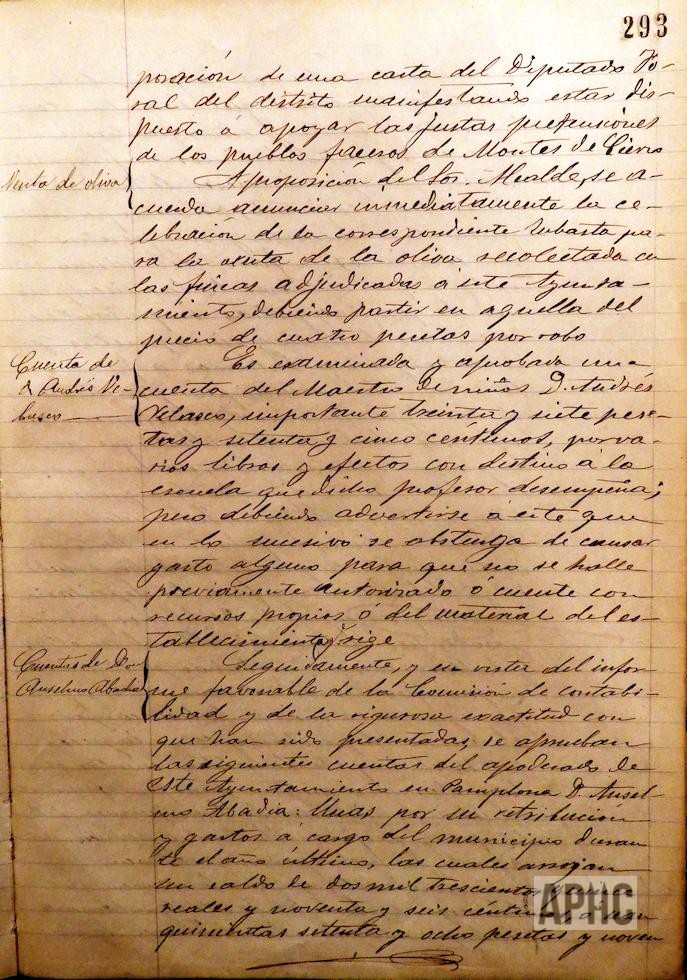 293
poración de una carta del Diputado Fo-
ral del distrito manifestando estar dis-
puesto á apoyar las justas pretensiones
de los pueblos faceros de Montes de Cierzo
Venta de oliva
A proposicion del Sor. Alcalde, se a-
cuerda anunciar inmediatamente la ce-
lebración de la correspondiente subasta pa-
ra la venta de la oliva recolectada en
las fincas adjudicadas á este Ayunta-
miento, debiendo partir en aquella del
precio de cuatro pesetas por robo
Cuenta de
D Andrés Ve-
lasco
Es examinada y aprobada una
cuenta del Maestro de niños D. Andrés
Velasco, importante treinta y siete pese-
tas y setenta y cinco céntimos, por va-
rios libros y efectos con destino á la
escuela que dicho profesor desempeña;
pero debiendo advertirse á este que
en lo sucesivo se abstenga de causar
gasto alguno para que no se halle
previamente autorizado ó cuente con
recursos propios ó del material del es-
tablecimiento q. rige
Cuentas de Don
Anselmo Abadia
Seguidamente, y en vista del infor-
me favorable de la Comisión de contabi-
lidad y de la rigurosa exactitud con
que han sido presentadas, se aprueban
las siguientes cuentas del apoderado de
este Ayuntamiento en Pamplona D. Ansel-
mo Abadia: Unas por su retribucion
y gastos á cargo del municipio duran
te el año último, las cuales arrojan
un saldo de dos mil trescientos
reales y noventa y seis
quinientas setenta y ocho pesetas y noven
APHC